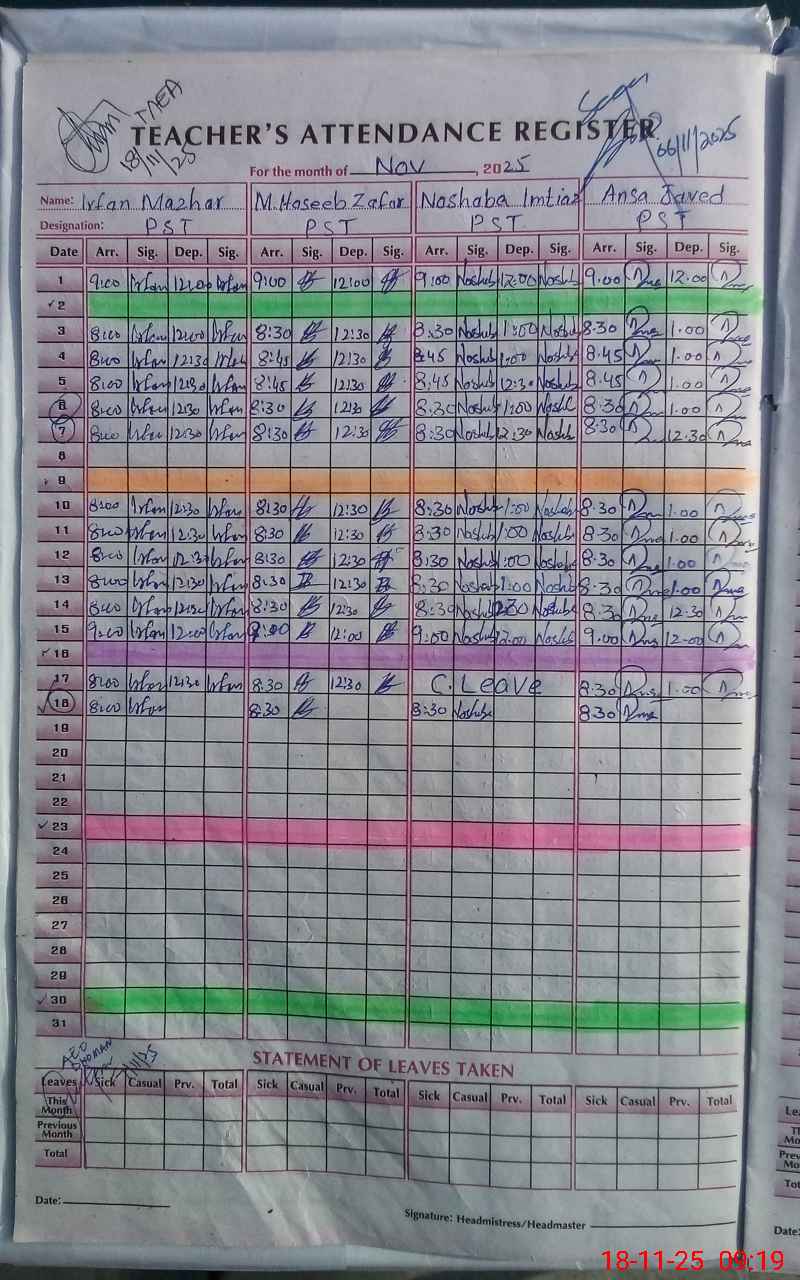 MEA
18/11/25
TEACHER'S ATTENDANCE REGISTER
06/11/2025
For the month of Nov, 2025
Name: Irfan Mazhar M. Haseeb Zafar Noshaba Imtiaz Ansa Javed
Designation: PST PST PST PST
Date Arr. Sig. Dep. Sig. Arr. Sig. Dep. Sig. Arr. Sig. Dep. Sig. Arr. Sig. Dep. Sig.
1 9:00 Irfan 12:00 Irfan 9:00 12:00 9:00 Noshab 12:00 Noshb 9.00 12.00
✓2
3 8:00 Irfan 12:00 Irfan 8:30 12:30 8:30 Noshab 1:00 Noshb 8.30 1.00
4 8:00 Irfan 12:30 Irfan 8:45 12:30 8:45 Noshab 1:00 Noshab 8.45 1.00
5 8:00 Irfan 12:30 Irfan 8:45 12:30 8:45 Noshab 12:30 Noshab 8.45 1.00
6 8:00 Irfan 12:30 Irfan 8:30 12:30 8:30 Noshab 1:00 Noshb 8.30 1.00
7 8:00 Irfan 12:30 Irfan 8:30 12:30 8:30 Noshab 12:30 Noshb 8:30 12.30
8
9
10 8:00 Irfan 12:30 Irfan 8:30 12:30 8:30 Noshab 1:00 Noshab 8.30 1.00
11 8:00 Irfan 12:30 Irfan 8:30 12:30 8:30 Noshab 1:00 Noshab 8.30 1.00
12 8:00 Irfan 12:30 Irfan 8:30 12:30 8:30 Noshab 1:00 Noshab 8.30 1.00
13 8:00 Irfan 12:30 Irfan 8:30 12:30 8:30 Noshab 1:00 Noshab 8.30 1.00
14 8:00 Irfan 12:30 Irfan 8:30 12:30 8:30 Noshab 12:30 Noshab 8.30 12.30
15 9:00 Irfan 12:00 Irfan 9:00 12:00 9:00 Noshab 12:00 Noshab 9.00 12-00
✓16
17 8:00 Irfan 12:30 Irfan 8:30 12:30 C. Leave 8:30 1.00
✓18 8:00 Irfan 8:30 8:30 Noshab 8.30
19
20
21
22
✓23
24
25
26
27
28
29
✓30
31
AEO
STATEMENT OF LEAVES TAKEN
Leaves Sick Casual Prv. Total Sick Casual Prv. Total Sick Casual Prv. Total Sick Casual Prv. Total
This Month
Previous Month
Total
Date:
Signature: Headmistress/Headmaster
Date:
18-11-25 09:19